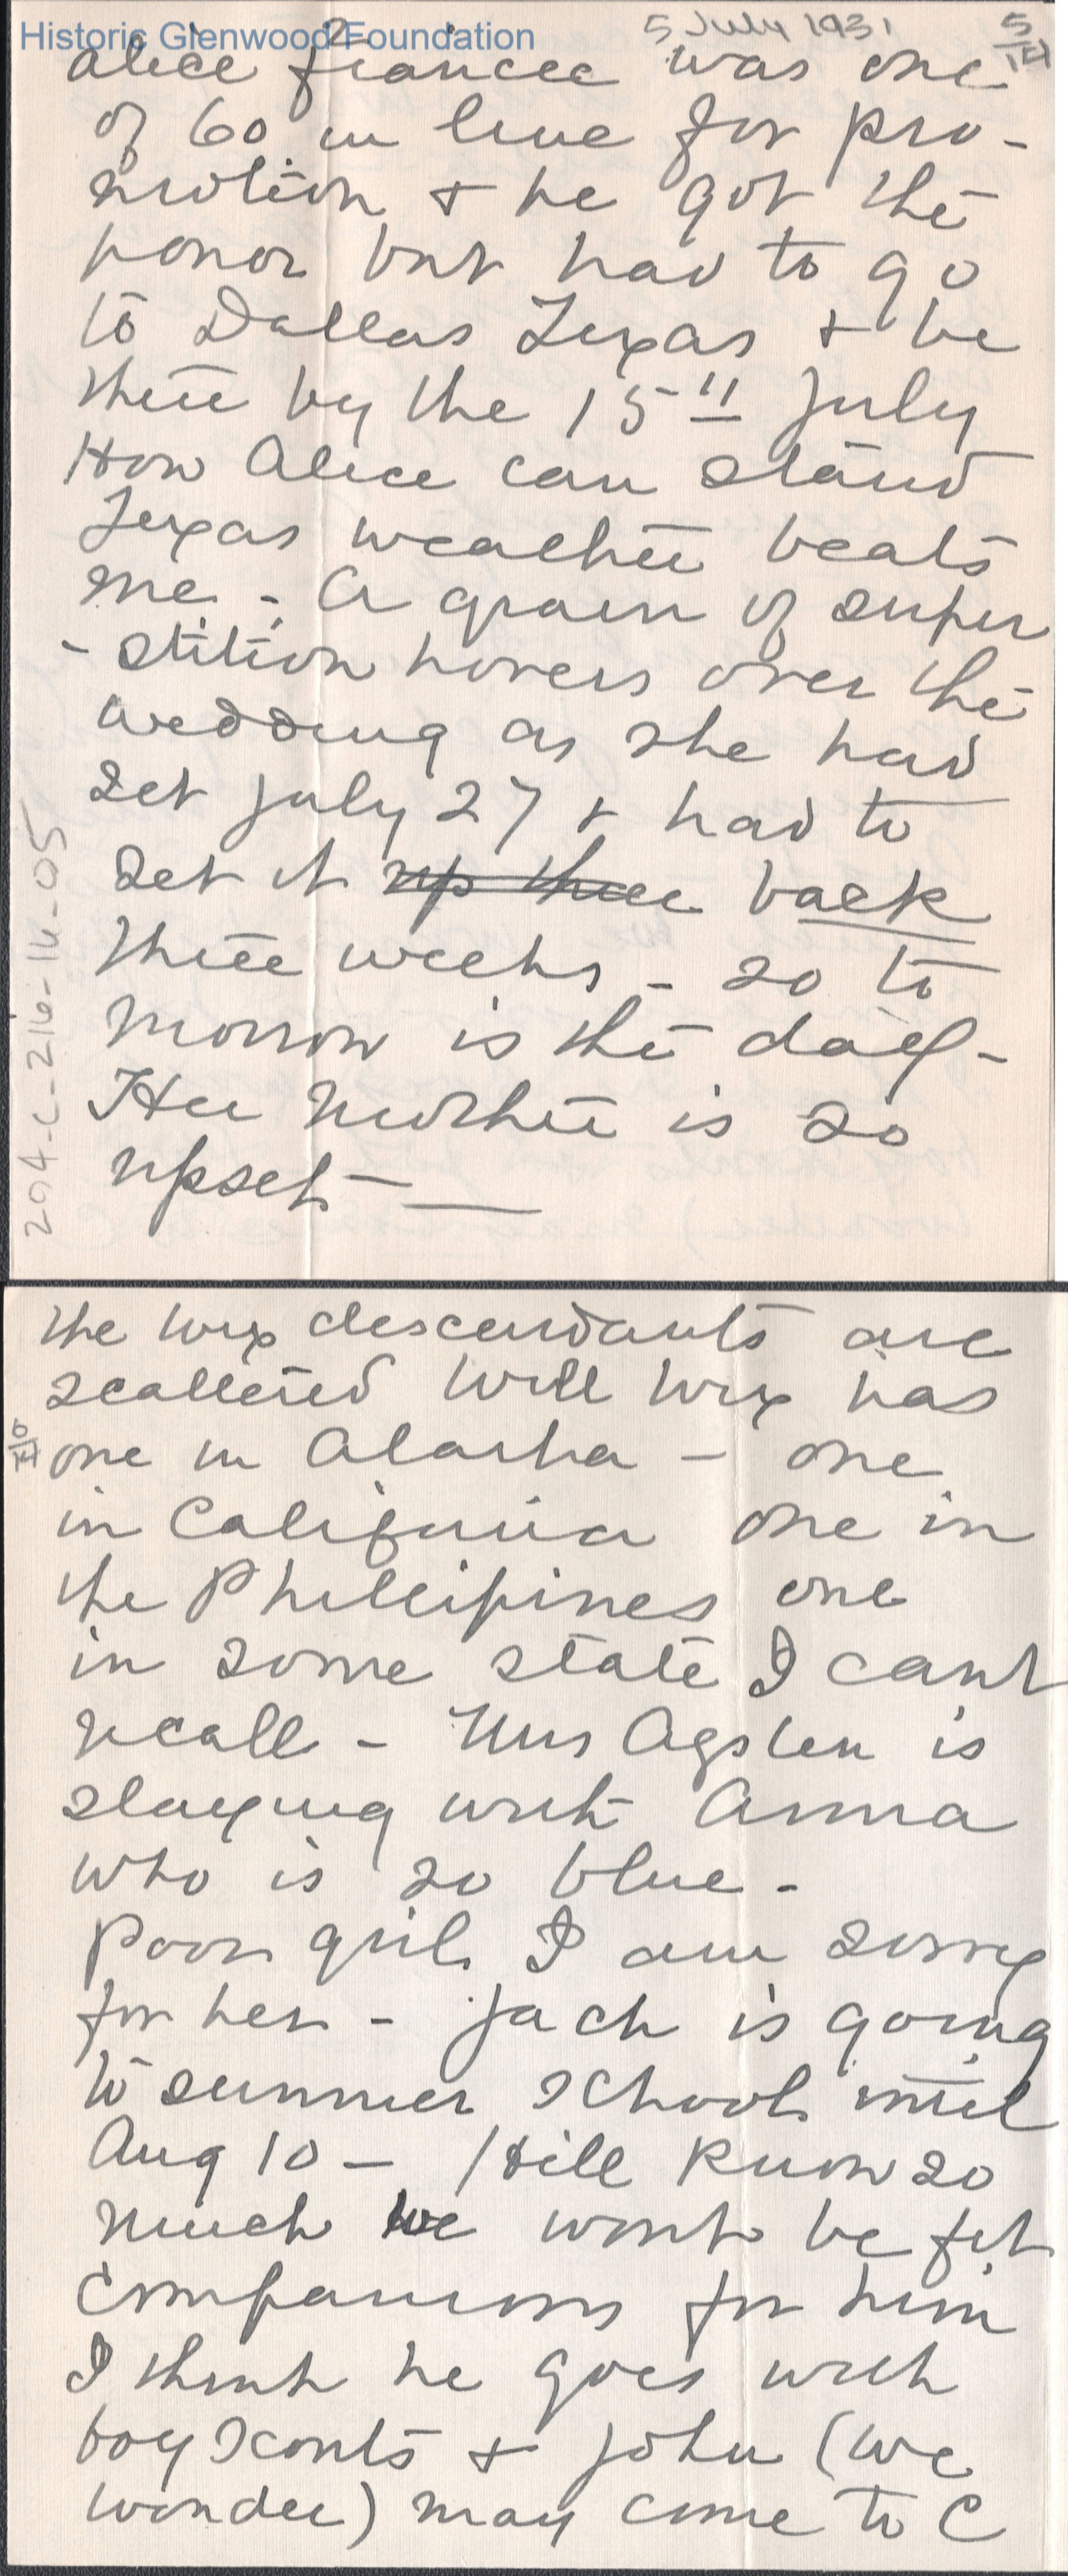 Historic Glenwood Foundation
2
5 July 1931
5/14
Alice fiancee was one
of 60 in line for pro-
motion & he got the
honor but had to go
to Dallas Texas & be
there by the 15" July
How Alice can stand
Texas weather beats
me - A grain of super
-stition hovers over the
wedding as she had
set July 27 & had to
set it up three back
three weeks - so to
morrow is the day -
Her Mother is so
upset —
204-C-216-14-05
the Wix descendants are
scattered Will Wix has
one in Alaska - one
in California one in
the Phillipines one
in some state I cant
recall - Mrs Agsten is
staying with Anna
who is so blue -
Poor girl I am sorry
for her - Jack is going
to summer school until
Aug 10 - He'll know so
much we wont be fit
companions for him
I think he goes with
boy scouts & John (we
wonder) may come to C